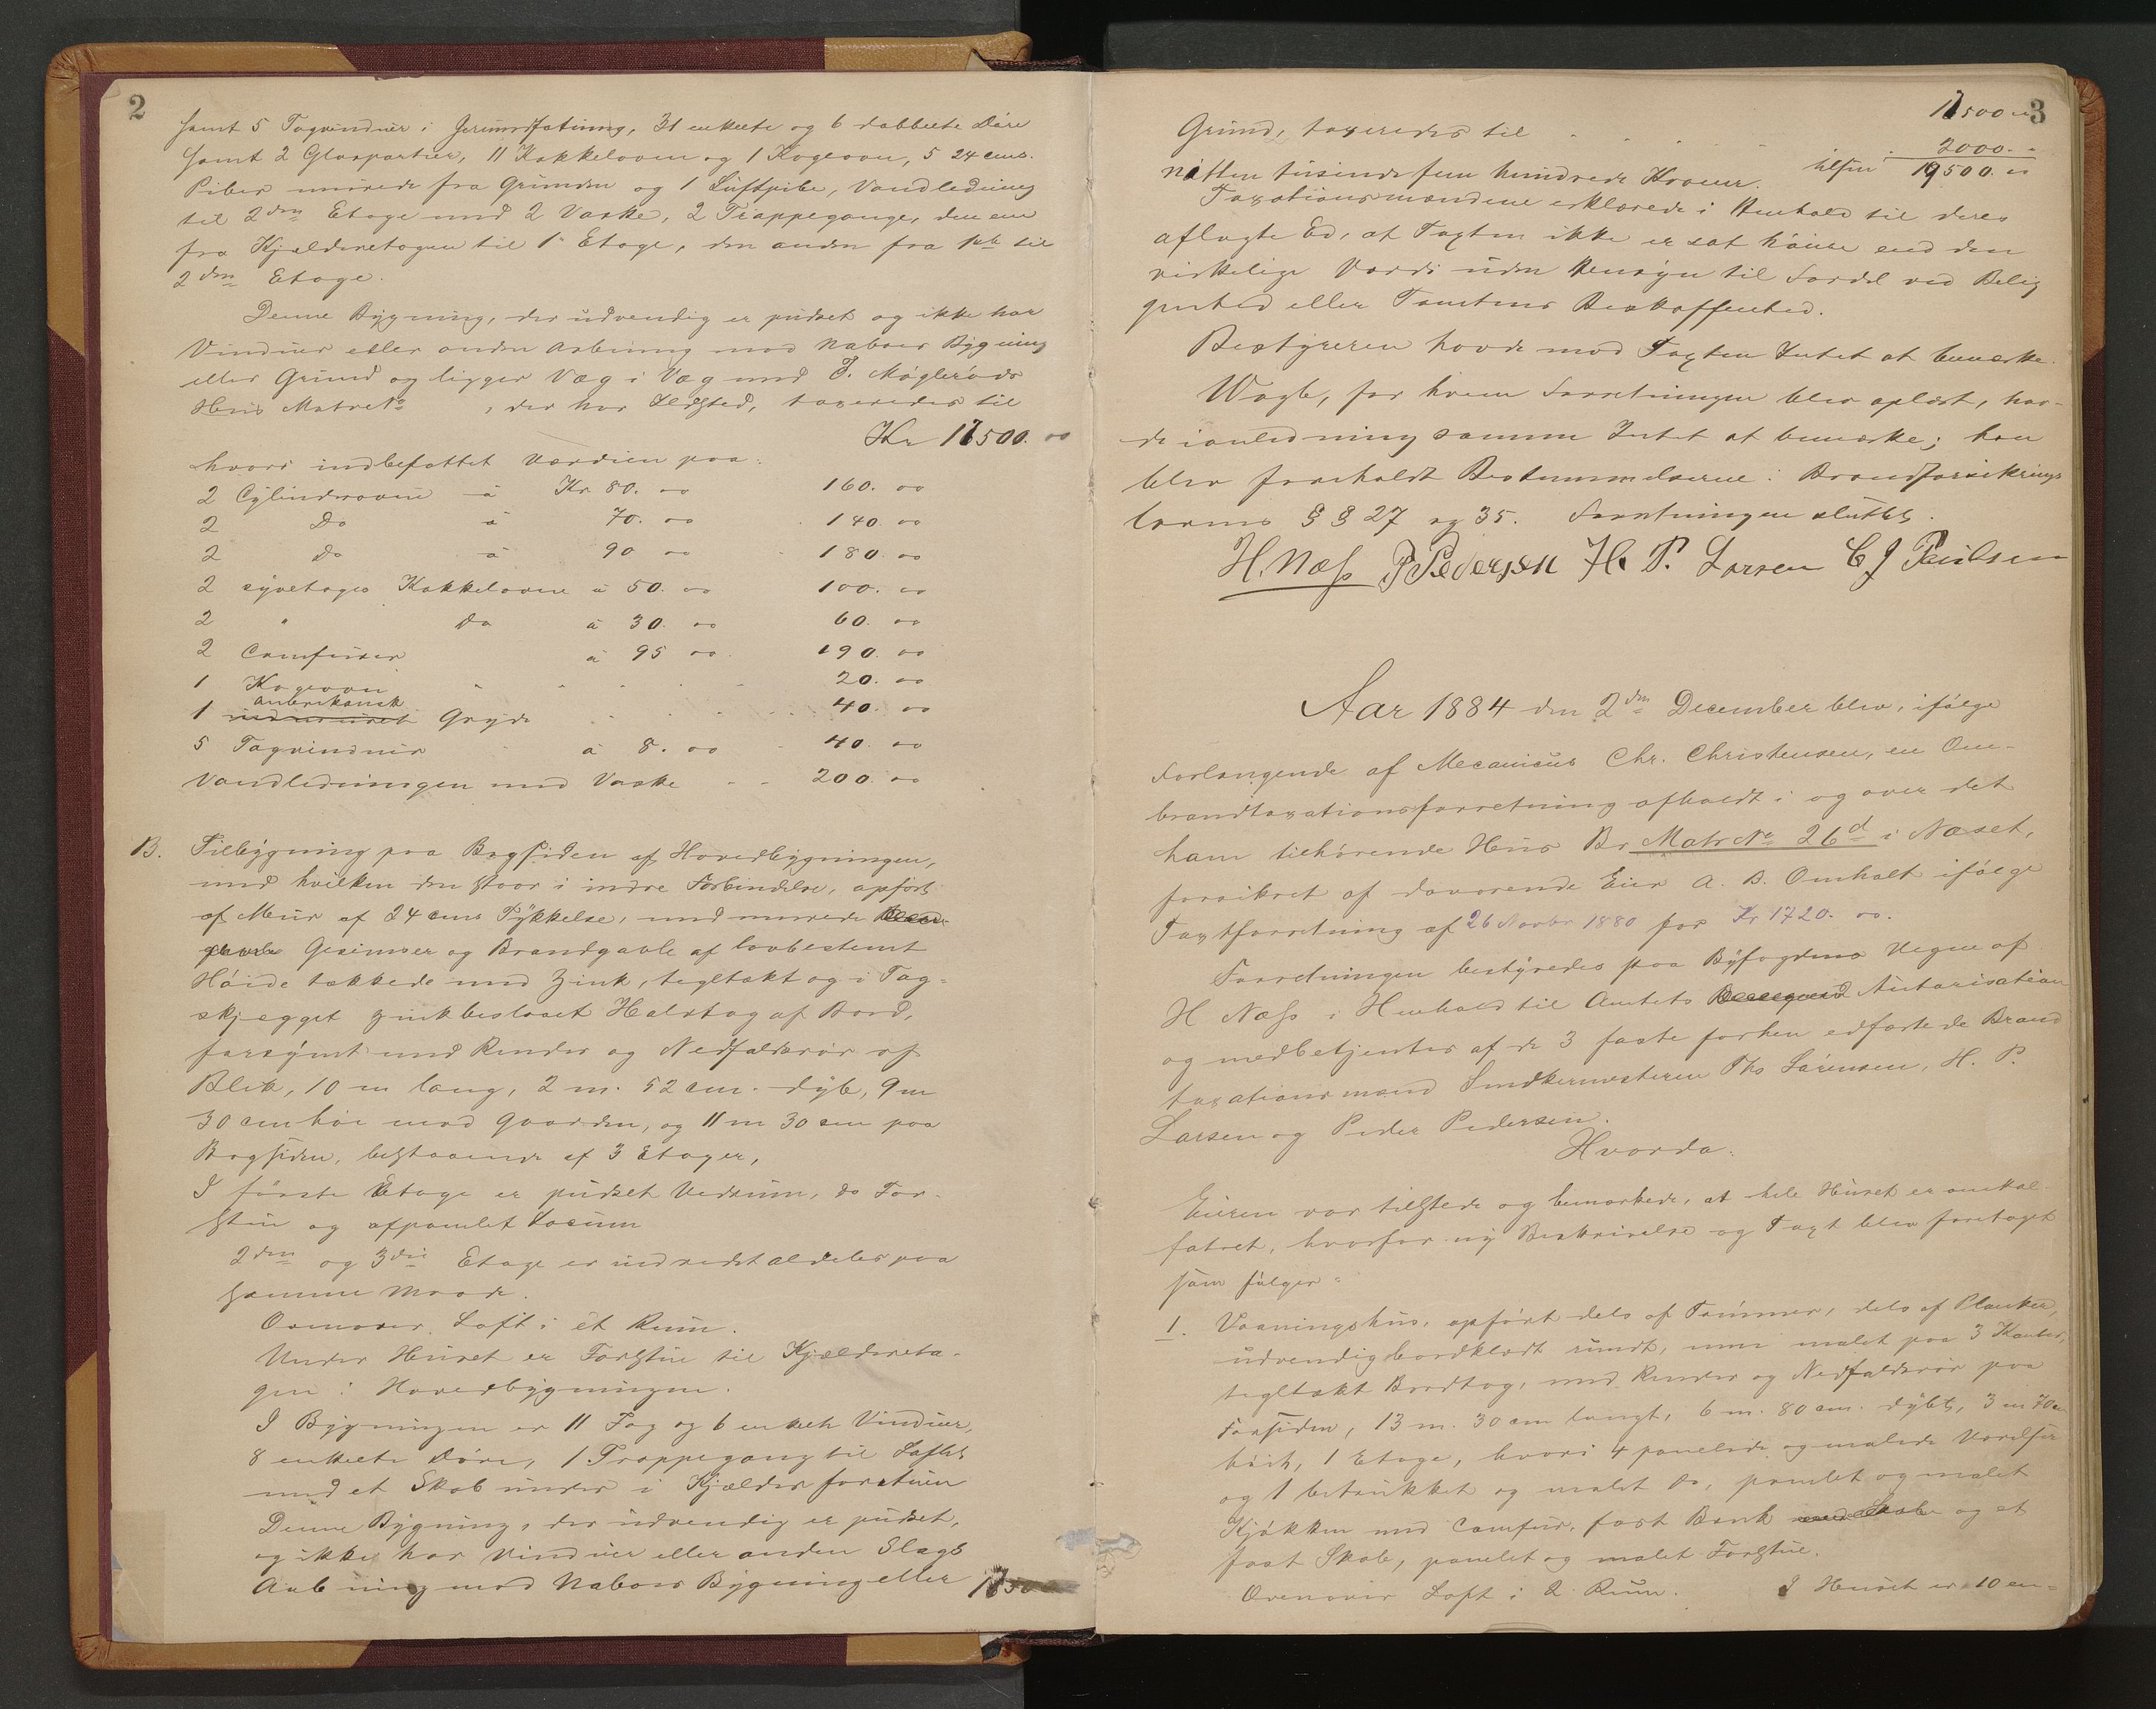 2
samt 5 Tagvinduer i Jernindfatning, 31 enkelte og 6 dobbelte Döre
samt 2 Glaspartier, 11 Kakkelovne og 1 Kogeovn, 5 24 cms.
Piber murede fra Grunden og 1 Luftpibe, Vandledning
til 2den Etage med 2 Vaske, 2 Trappegange, den ene
fra Kjelderetagen til 1e Etage, den anden fra 1ste til
2den Etage.
Denne Bygning, der udvendig er pudset og ikke har
Vinduer eller anden Aabning mod Naboers Bygning
eller Grund og ligger Væg i Væg med T. Møglerøds
Hus Matr № , der har Ildsted, taxeredes til
Kr 17500. 00
hvori indbefattet Værdien paa:
2 Cylinderovne à Kr 80. 00 160. 00
2 Do à 70. 00 140. 00
2 Do à 90 00 180. 00
2 syvetages Kakkelovne à 50. 00 100. 00
2 " Do à 30. 00 60. 00
2 Comfurer à 95 00 190. 00
1 Kogeovn 20. 00
1 amerikansk Gryde 40. 00
5 Tagvinduer à 8. 00 40. 00
Vandledningen med Vaske 200. 00
B. Tilbygning paa Bagsiden af Hovedbygningen,
med hvilken den staar i indre Forbindelse, opført
af Mur af 24 cms Tykkelse, med murede
Gesimser og Brandgavle af lovbestemt
Høide tækkede med Zink, tegltækt og i Tag-
skjægget zinkbeslaaet Halvtag af Bord,
forsynt med Render og Nedfaldsrør af
Blik, 10 m lang, 2 m. 52 cm. dyb, 9 m
30 cm høi mod Gaarden, og 11 m 30 cm paa
Bagsiden, bestaaende af 3 Etager,
I første Etage er pudset Vedrum, do For-
stue og afpanelet Locum
2den og 3die Etage er indredet aldeles paa
samme Maade.
Ovenover Loft i et Rum.
Under Huset er Forstue til Kjældereta-
gen i Hovedbygningen.
I Bygningen er 11 Fag og 6 enkelte Vinduer,
8 enkelte Döre, 1 Trappegang til Loftet
med et Skab under i Kjælderforstuen
Denne Bygning, der udvendig er pudset,
og ikke har Vinduer eller anden Slags
Aabning mod Naboers Bygning eller
3
17500 00
Grund, taxeredes til 2000. -
nitten tusinde fem hundrede Kroner. tilsm 19500. 00
Taxationsmændene erklærede i Henhold til deres
aflagte Ed, at Taxten ikke er sat høiere end den
virkelige Værdi uden Hensyn til Fordel ved Belig
genhed eller Tomtens Beskaffenhed.
Bestyreren havde mod Taxten Intet at bemærke.
Wagle, for hvem Forretningen blev oplæst, hav-
de i anledning samme Intet at bemærke; han
blev foreholdt Bestemmelserne i Brandforsikrings
lovens § § 27 og 35. Forretningen sluttet.
H. Næss P Pedersen H. P. Larsen C J Paulsen
Aar 1884 den 2den December blev, ifølge
Forlangende af Mecanicus Chr. Christensen, en Om-
brandtaxationsforretning afholdt i og over det
ham tilhørende Hus Br Matr № 26d i Næset,
forsikret af daværende Eier A. B. Omholt ifølge
Taxtforretning af 26 Novbr 1880 for Kr 1720. 00.
Forretningen bestyredes paa Byfogdens Vegne af
H Næss i Henhold til Amtets Autorisation
og medbetjentes af de 3 faste forhen edfæstede Brand
taxationsmænd Snedkermesteren Ths Sørensen, H. P.
Larsen og Peder Pedersen.
Hvorda:
Eieren var tilstede og bemærkede, at hele Huset er omkal-
fatret, hvorfor ny Beskrivelse og Taxt blev foretaget
som følger:
1. Vaaningshus, opført dels af Tømmer, dels af Planker,
udvendig bordklædt rundt, men malet paa 3 Kanter,
tegltækt Bordtag, med Render og Nedfaldsrør paa
Forsiden, 13 m. 30 cm langt, 6 m. 80 cm. dybt, 3 m 70 cm
høit, 1 Etage, hvori 4 panelede og malede Værelser
og 1 betrukket og malet Do, panelet og malet
Kjøkken med Comfur, fast Bænk og et
fast Skab, panelet og malet Forstue.
Ovenover Loft i 2 Rum. I Huset er 10 en-